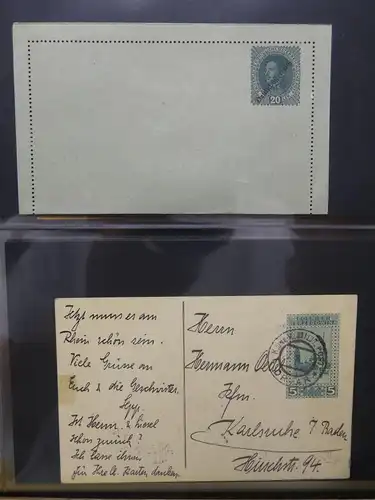 20
Jetzt muss es am
Rhein schön sein.
Viele Grüsse an
Euch & die Geschwister
Sepp.
Ist Herm. & Liesel
schon zurück?
Ich lasse ihnen
für Ihre Karten danken
Herrn
Hermann
Hfm.
Karlsruhe i/ Baden
Hirschstr. 94.
5 5